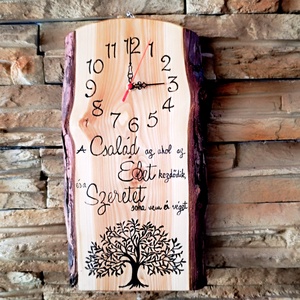 12
11 1
10 2
9 3
8 4
7 5
6
A Család az, ahol az
Élet kezdődik,
és a
Szeretet
soha nem ér véget.